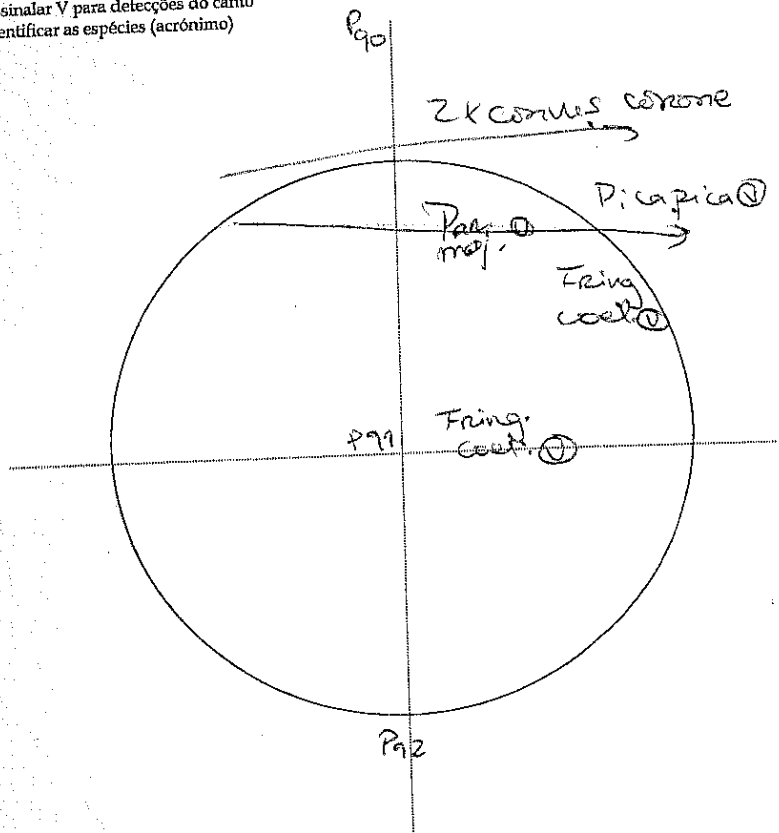 sinalar V para detecções do canto
entificar as espécies (acrónimo)
P90
2x corvus corone
Pica pica V
Par.
maj. V
Fring
coel. V
P91
Fring.
coel. V
P92